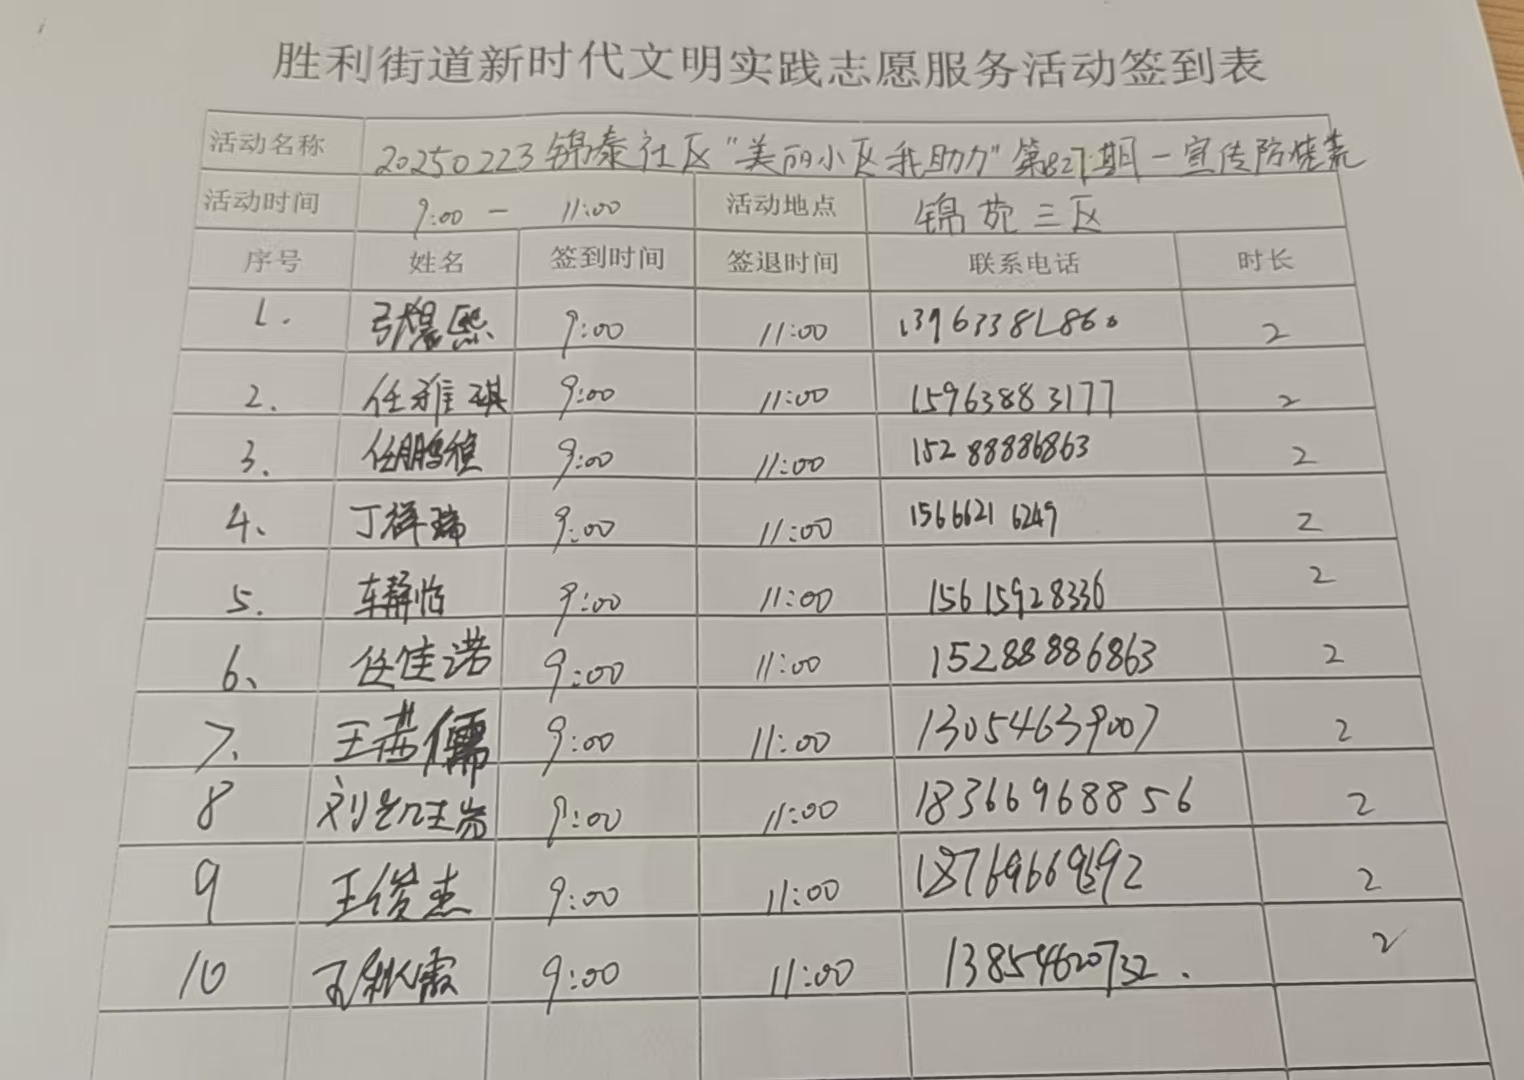 胜利街道新时代文明实践志愿服务活动签到表
活动名称 20250223锦泰社区"美丽小区我助力"第827期-宣传防烧荒
活动时间 9:00 - 11:00 活动地点 锦苑三区
序号 姓名 签到时间 签退时间 联系电话 时长
1. 9:00 11:00 2
2. 任雅琪 9:00 11:00 15963883177 2
3. 任鹏 9:00 11:00 15288886863 2
4、 丁祥瑞 9:00 11:00 15666216249 2
5. 车静怡 9:00 11:00 15615928336 2
6、 任佳诺 9:00 11:00 15288886863 2
7. 王茜儒 9:00 11:00 13054639007 2
8 刘 9:00 11:00 18366968856 2
9 王俊杰 9:00 11:00 2
10 王秋霞 9:00 11:00 13854620732. 2